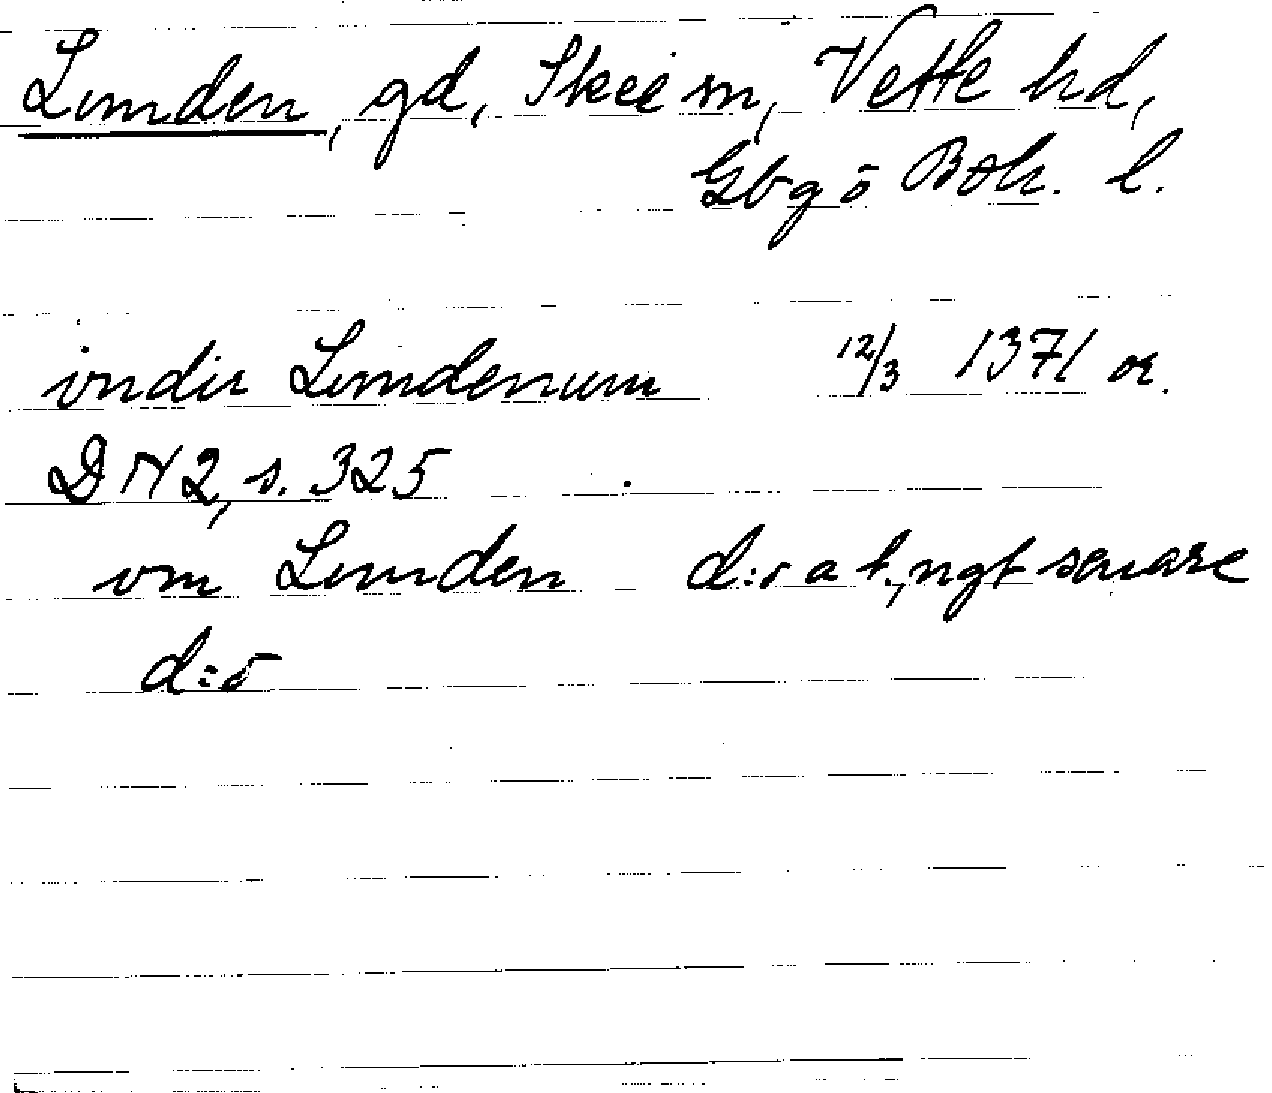 Lunden, gd, Skee sn, Vette hd,
Gbg o Boh. l.
vndir Lundenum 12/3 1371 or.
DN 2, s. 325
vm Lunden d:o a t., ngt senare
d:o